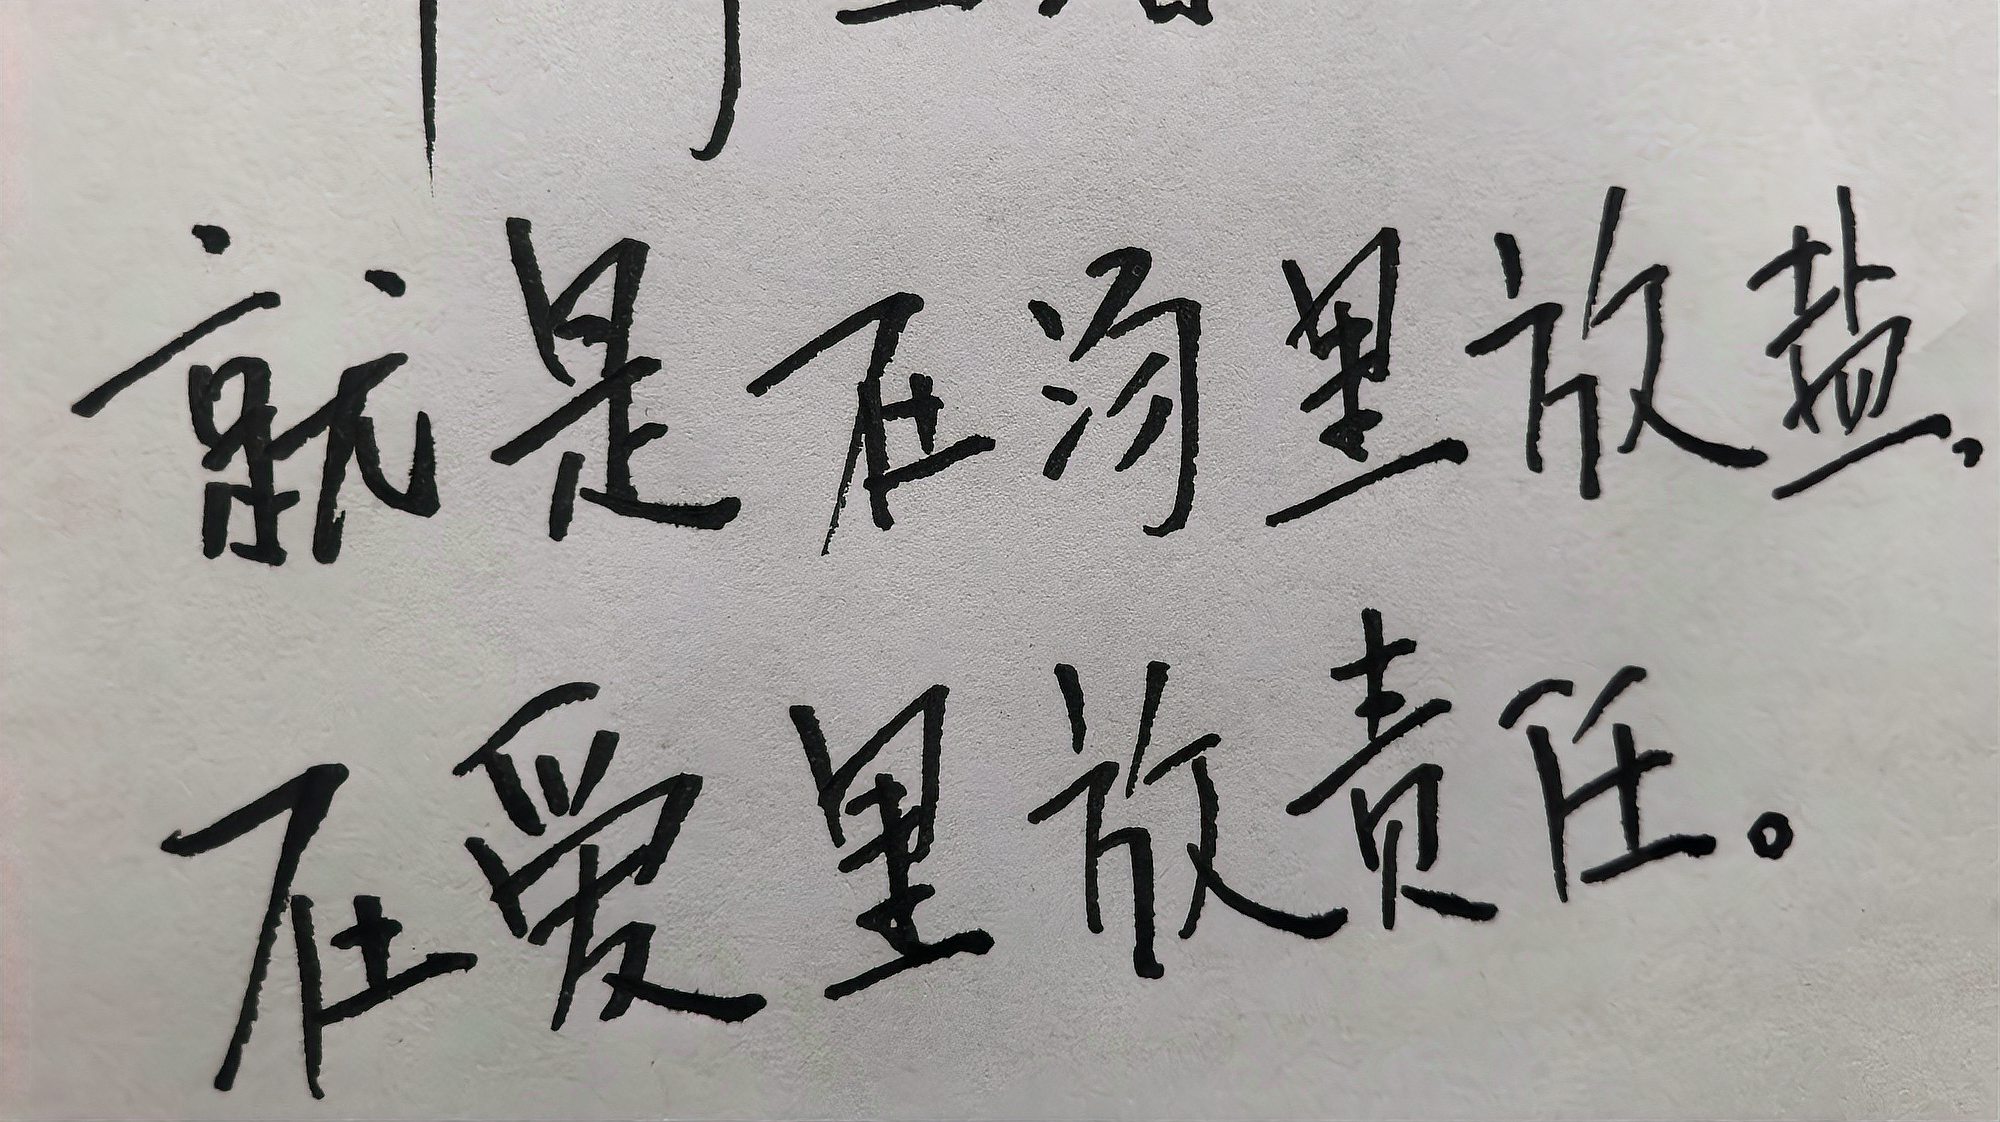 就是在汤里放盐，
在爱里放责任。